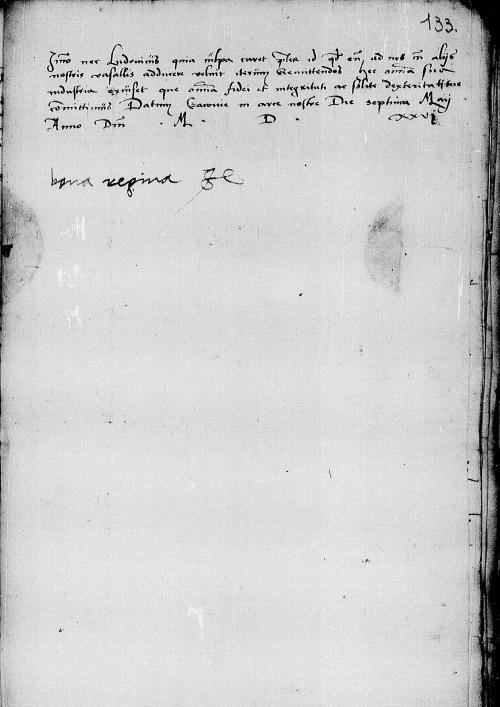 133.
Imo nec Ludovicus quia culpa caret p̄tea id qd̄ em̄ ad nos m̄ alijs
nostris vasallis adducere voluit iterum Remittendos hec om̄ia sua
industria exequet que om̄ia fidei et integritati ac solite dexteritati tue
com̄ittimus Datum Cracovie in arce nostre Die septima Maij
Anno Dn̄i . M . D . xxvi
bona regina